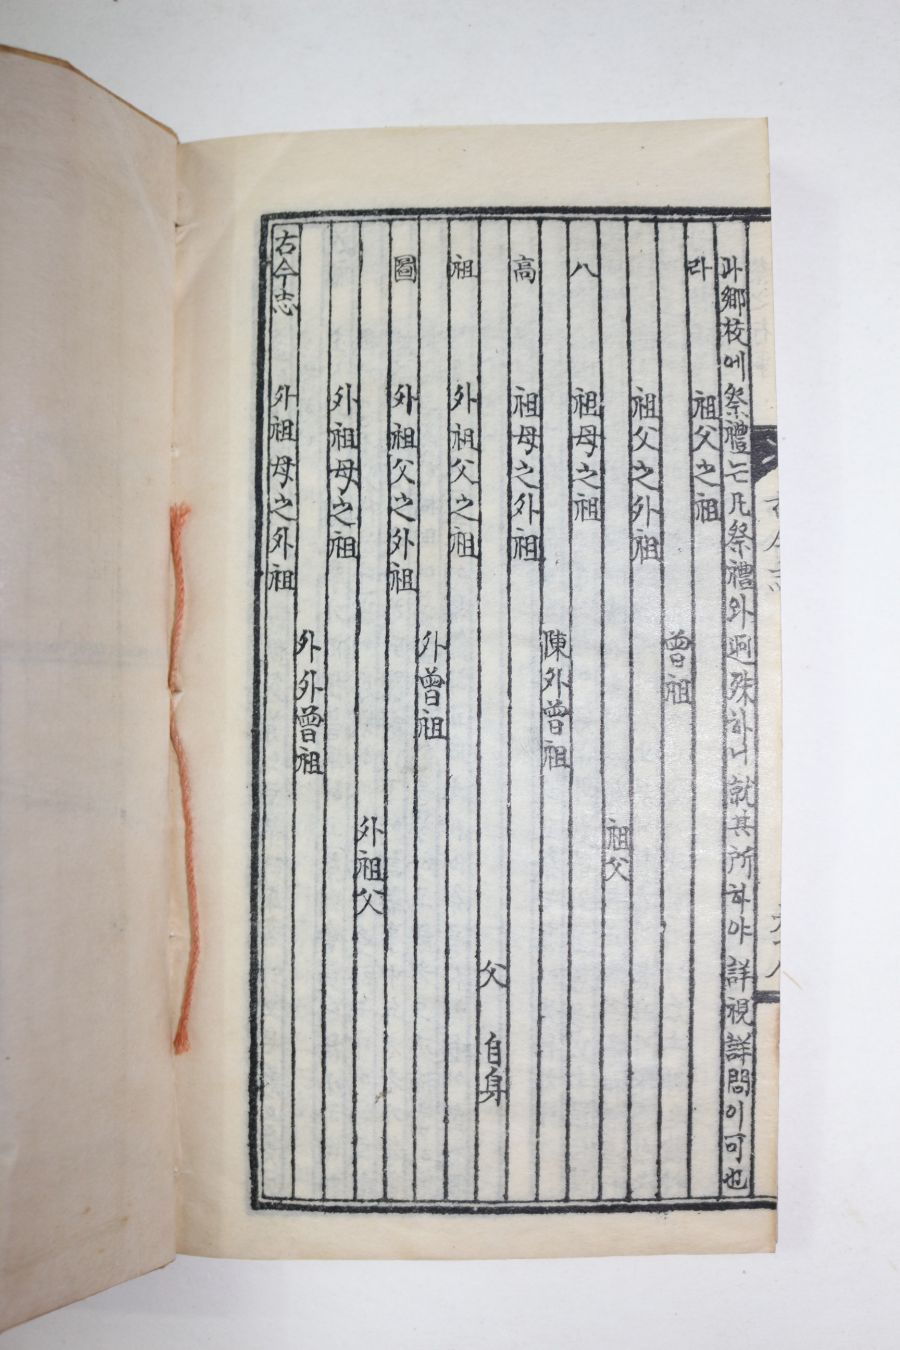 과鄕校에祭禮는凡祭禮와逈殊하니就其所하야詳視詳問이可也
라 祖父之祖
曾祖
祖父之外祖
祖父
八 祖母之祖
陳外曾祖
高 祖母之外祖
父 自身
祖 外祖父之祖
外曾祖
圖 外祖父之外祖
外祖父
外祖母之祖
外外曾祖
古今志 外祖母之外祖